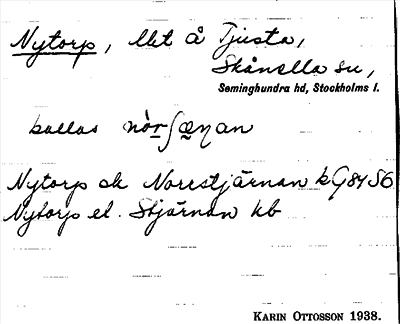 Nytorp, llet å Tjusta,
Skånella sn,
Seminghundra hd, Stockholms l.
kallas nòrʃæŋan
Nytorp ek Norrstjärnan kG84 S6
Nytorp el. Stjärnan kb
KARIN OTTOSSON 1938.